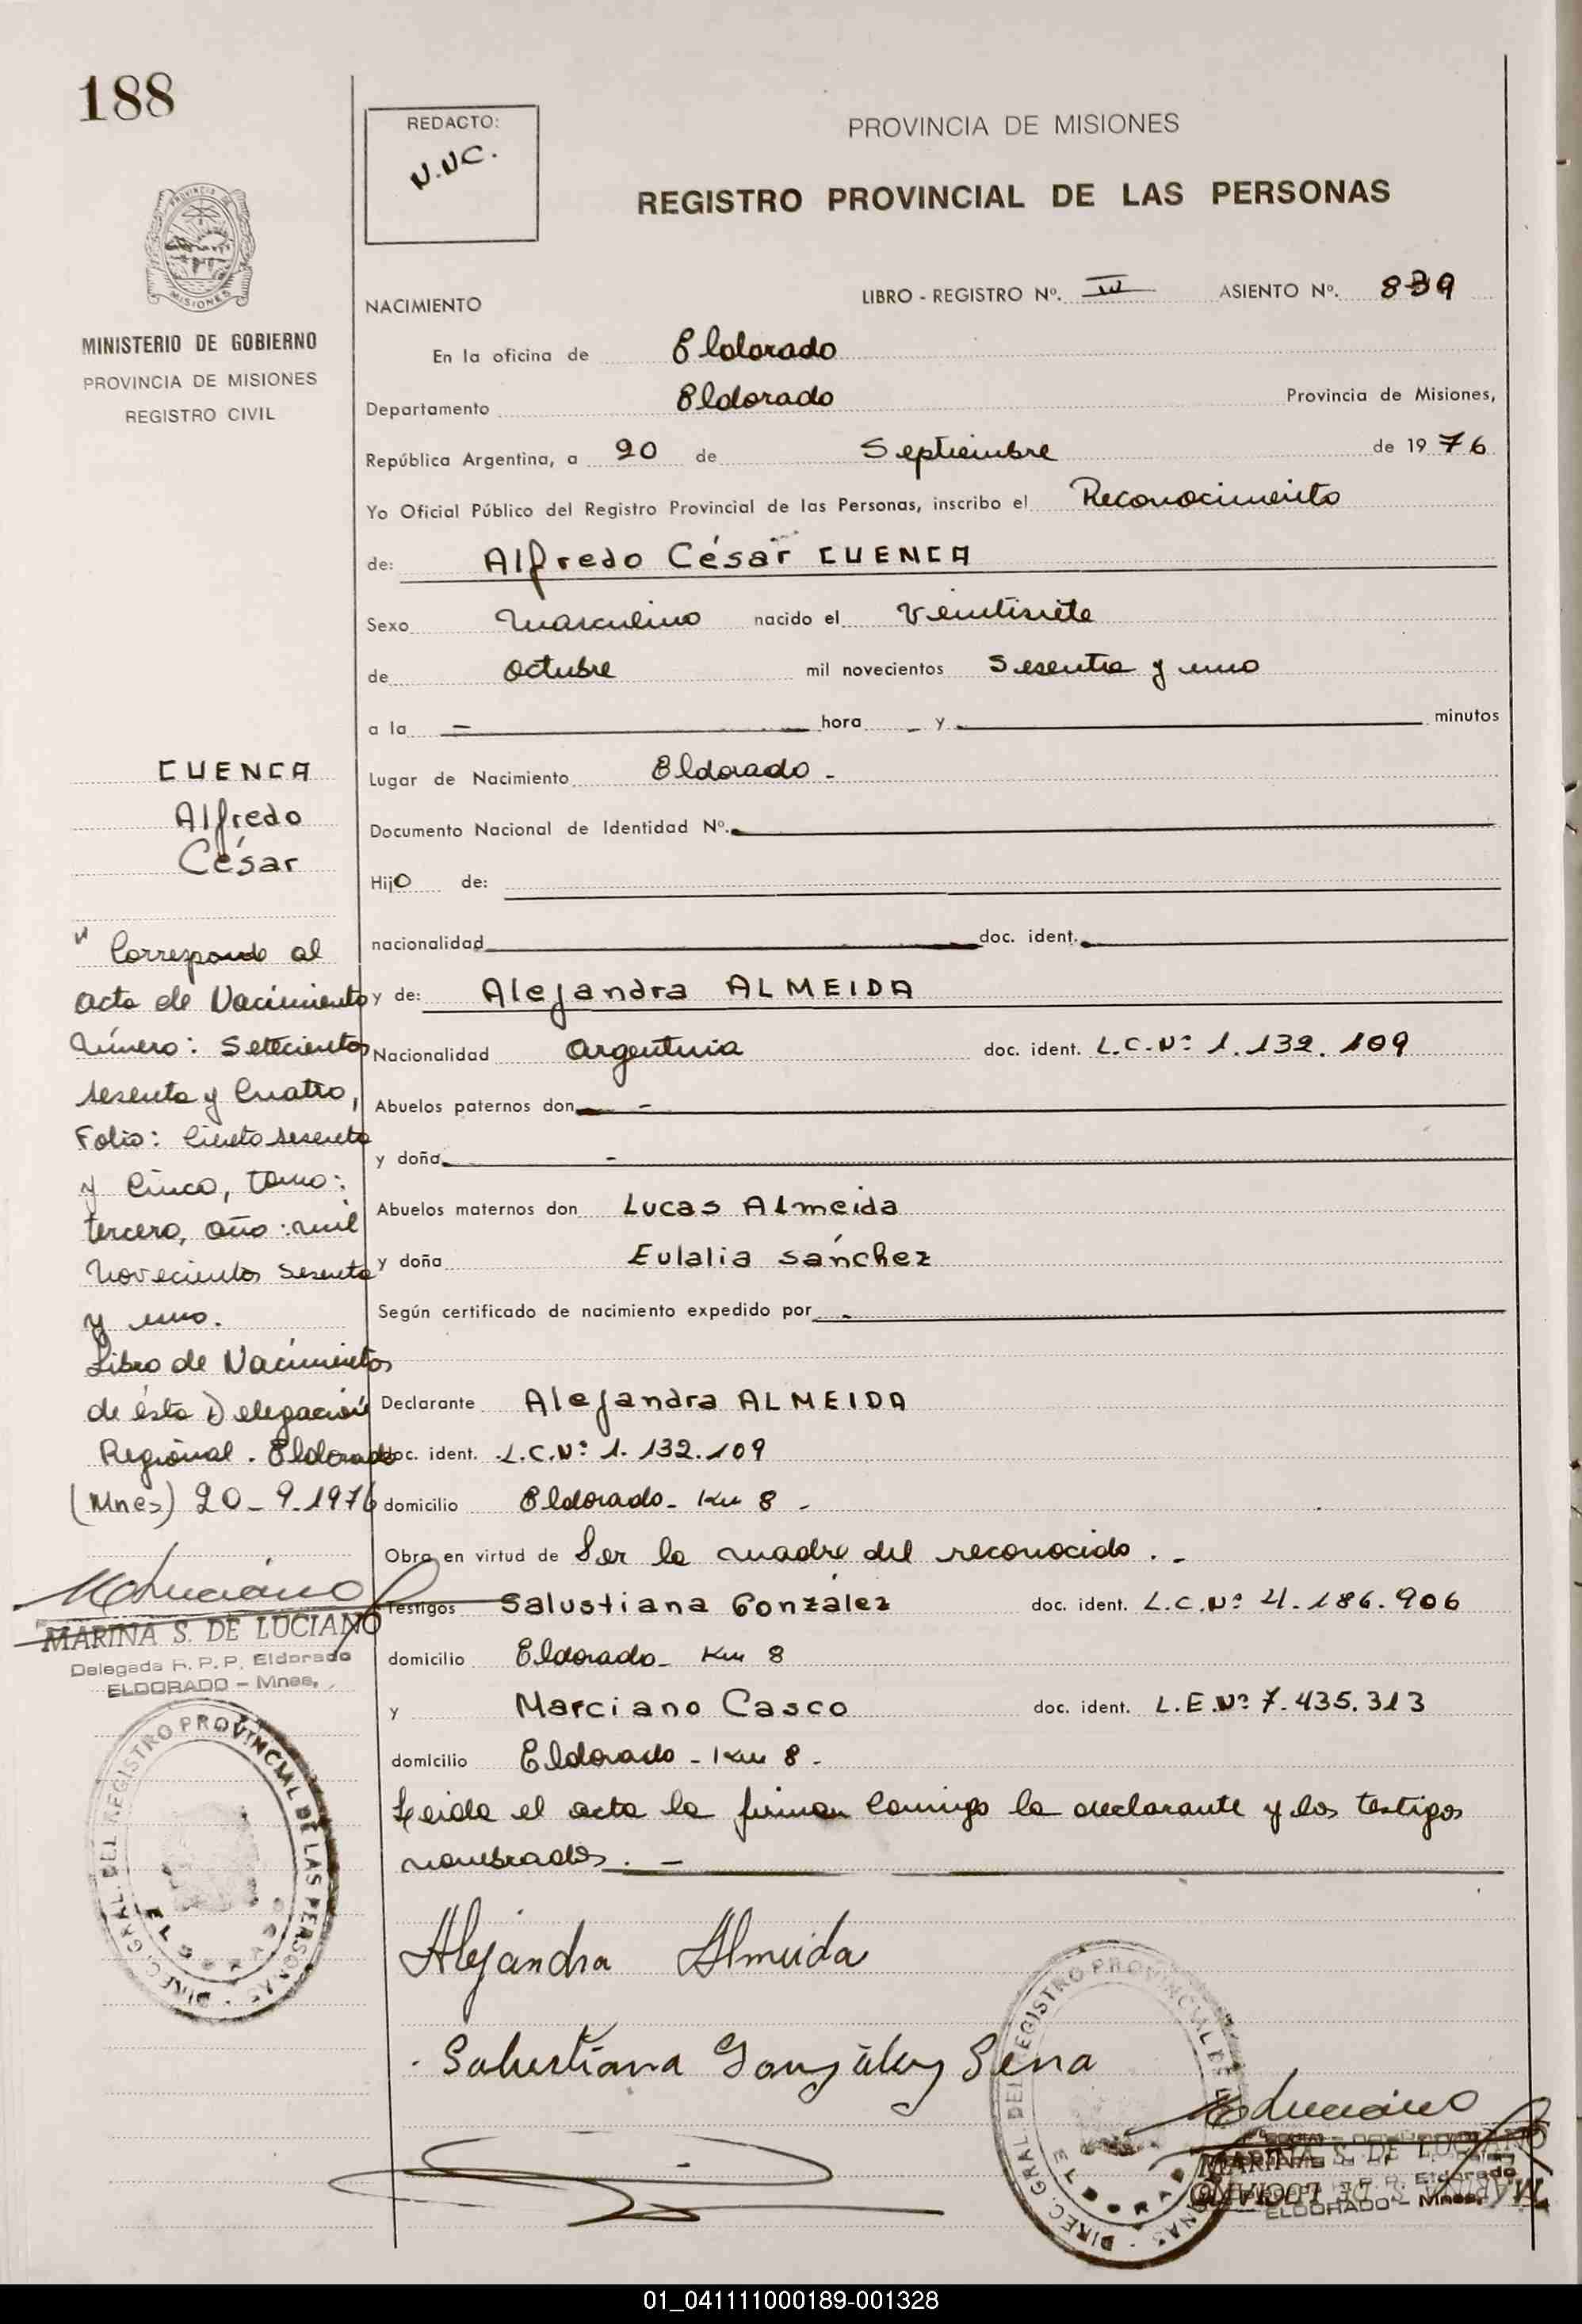 188
REDACTO:
N.N.C.
PROVINCIA DE MISIONES
REGISTRO PROVINCIAL DE LAS PERSONAS
PROVINCIA DE
MISIONES
MINISTERIO DE GOBIERNO
PROVINCIA DE MISIONES
REGISTRO CIVIL
NACIMIENTO
LIBRO - REGISTRO Nº. III ASIENTO Nº. 839
En la oficina de Eldorado
Departamento Eldorado Provincia de Misiones,
República Argentina, a 20 de Septiembre de 1976
Yo Oficial Público del Registro Provincial de las Personas, inscribo el Reconocimiento
de: Alfredo César CUENCA
Sexo Masculino nacido el Veintisiete
de octubre mil novecientos Sesenta y uno
a la — hora - y - minutos
Lugar de Nacimiento Eldorado -
Documento Nacional de Identidad Nº.
Hijo de:
nacionalidad doc. ident.
y de: Alejandra ALMEIDA
Nacionalidad argentina doc. ident. L.C.Nº 1.132.109
Abuelos paternos don -
y doña -
Abuelos maternos don Lucas Almeida
y doña Eulalia Sánchez
Según certificado de nacimiento expedido por -
Declarante Alejandra ALMEIDA
doc. ident. L.C.Nº 1.132.109
domicilio Eldorado - Km 8 -
Obra en virtud de Ser la madre del reconocido . -
Testigos Salustiana González doc. ident. L.C.Nº 4.186.906
domicilio Eldorado - Km 8
y Marciano Casco doc. ident. L.E.Nº 7.435.313
domicilio Eldorado - Km 8 -
Leida el acta la firman conmigo la declarante y los testigos
nombrados . -
CUENCA
Alfredo
César
" Corresponde al
acta de Nacimiento
número: Setecientos
sesenta y Cuatro,
Folio: Ciento sesenta
y Cinco, tomo:
tercero, año: mil
novecientos sesenta
y uno.
Libro de Nacimientos
de ésta Delegación
Regional. Eldorado
(Mnes) 20-9-1976
MARINA S. DE LUCIANO
Delegada R. P. P. Eldorado
ELDORADO - Mnes.
DIREC. GRAL. DEL REGISTRO PROVINCIAL DE LAS PERSONAS
ELDORADO
Alejandra Almeida
Salustiana González Sena
DIREC. GRAL. DEL REGISTRO PROVINCIAL DE
ELDORAD
MARINA S. DE LUCIANO
Eldorado
ELDORADO - Mnes.
01_041111000189-001328